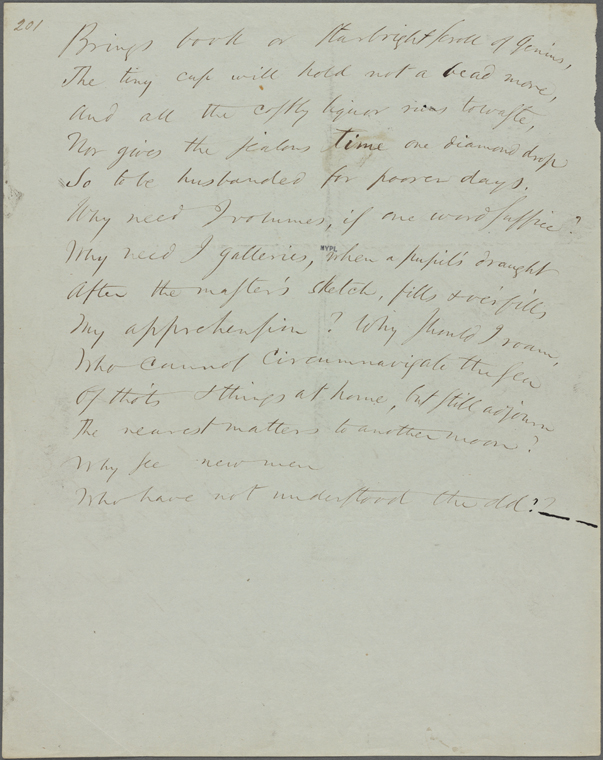 201
Brings book or starbright scroll of Genius,
The tiny cup will hold not a bead more,
And all the costly liquor runs to waste,
Nor gives the jealous time one diamond drop
So to be husbanded for poorer days.
Why need I volumes, if one word suffice?
Why need I galleries, when a pupil's draught
NYPL
After the master's sketch, fills & o'erfills
My apprehension? Why should I roam,
Who cannot circumnavigate the sea
Of tho'ts & things at home, but still adjourn
The nearest matters to another moon?
Why see new men
Who have not understood the old?? — —